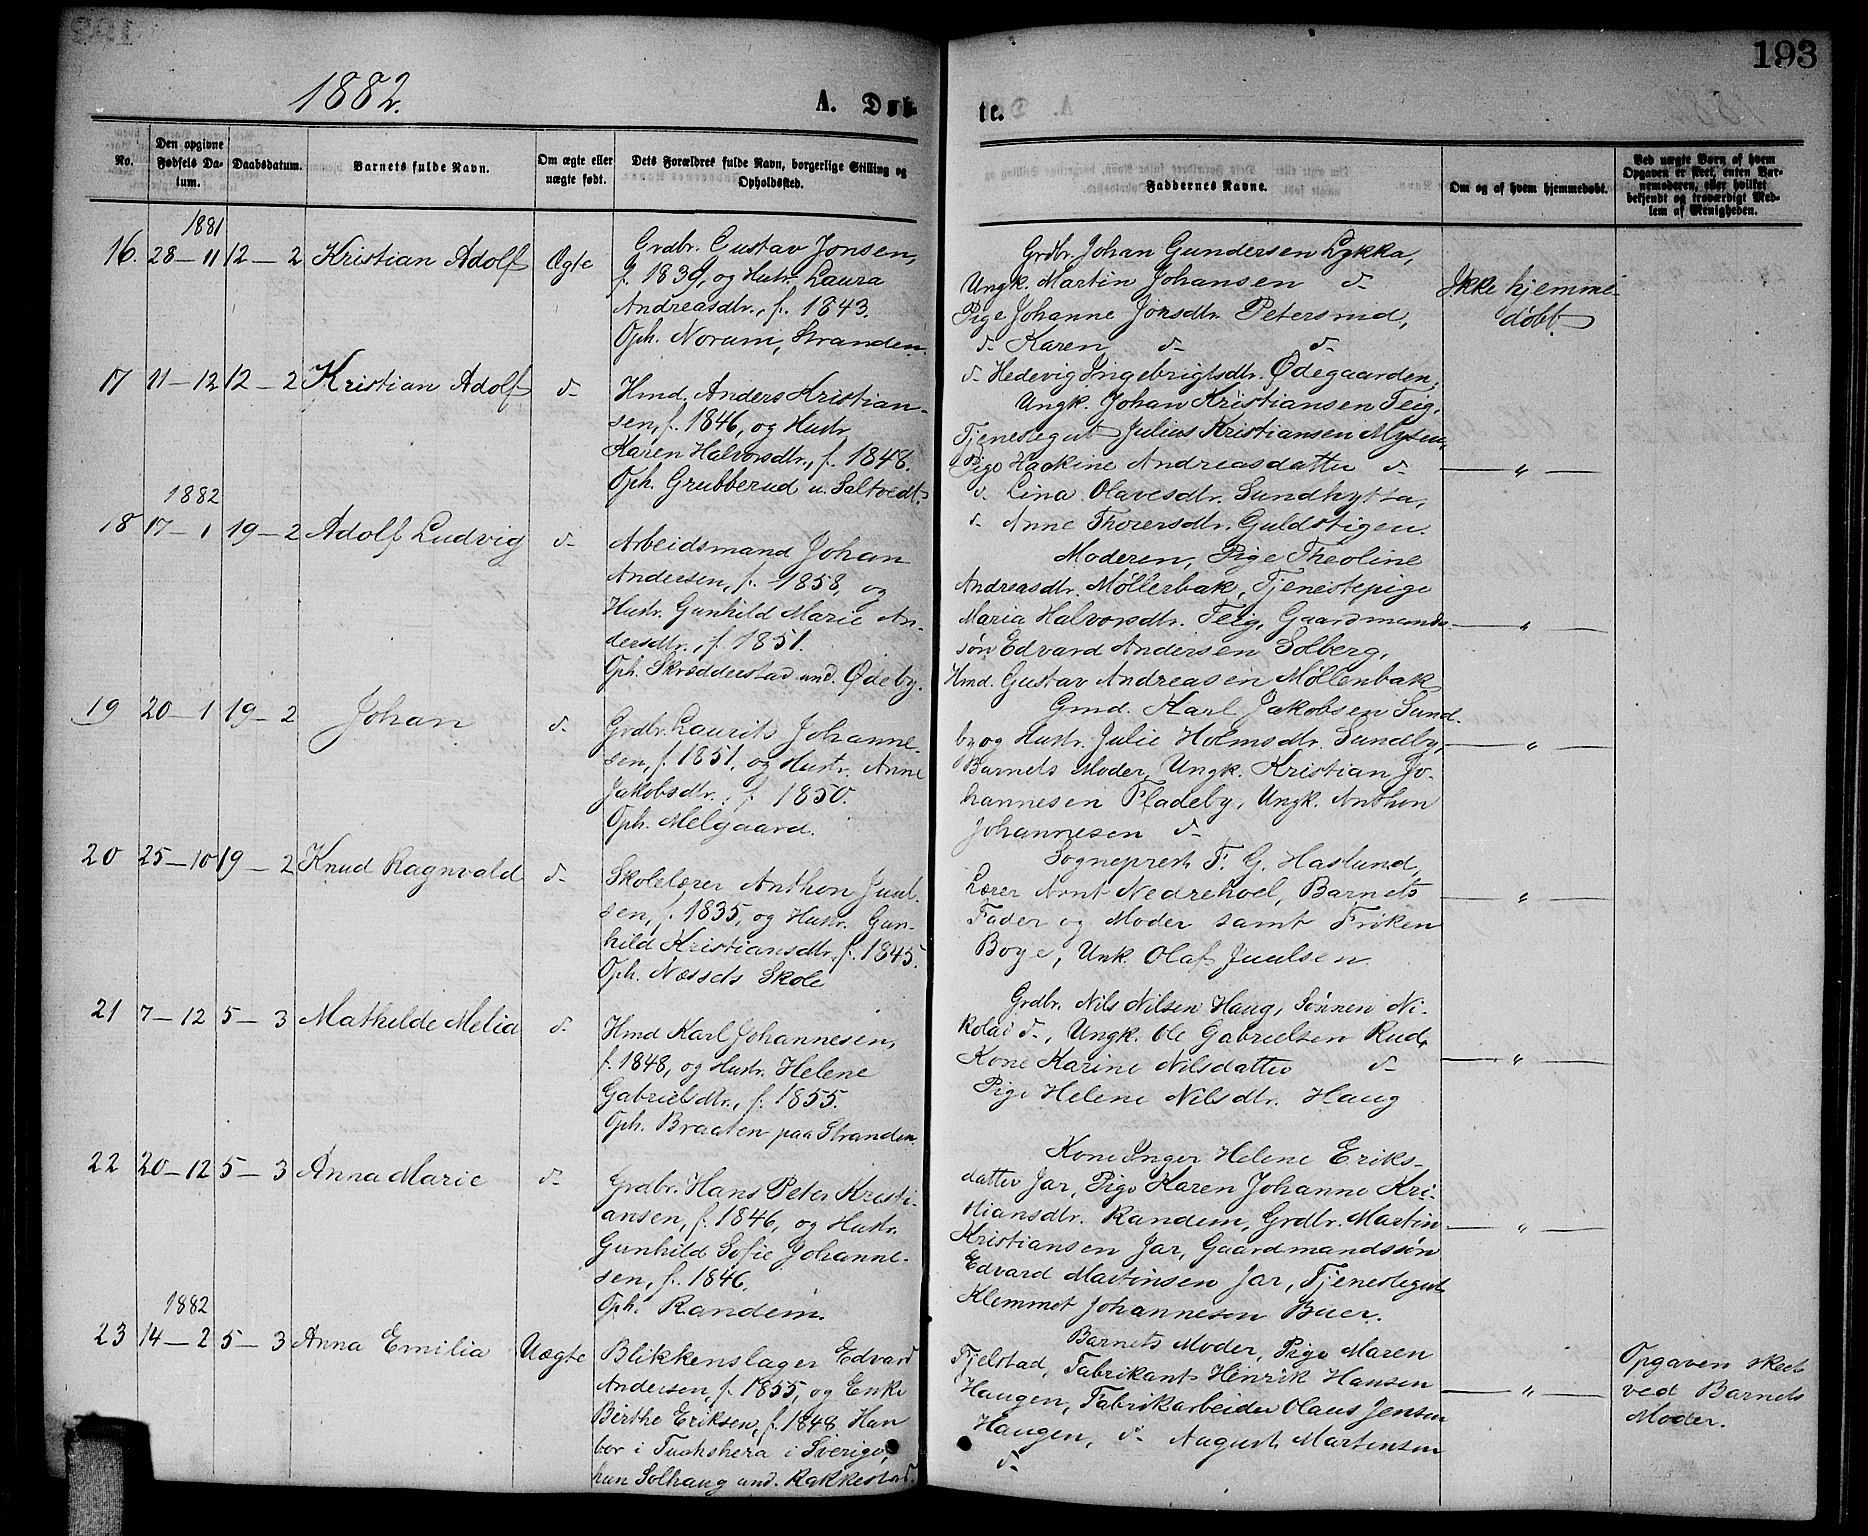 193
1882.
A. Døb-
te.
No.
Den opgivne Fødsels Da-tum.
Daabsdatum.
Barnets fulde Navn.
Om ægte eller uægte født.
Dets Forældres fulde Navn, borgerlige Stilling og Opholdssted.
Faddernes Navne.
Om og af hvem hjemmedøbt.
Ved uægte Børn af hvem Opgaven er skeet, enten Bar-nemoderen, eller hvilket bekjendt og troværdigt Med-lem af Menigheden.
1881
16. 28-11 12-2 Kristian Adolf Ægte
Grdbr. Gustav Jonsen,
f. 1839, og Hustr. Laura
Andreasdtr., f. 1843.
Oph. Norum, Stranden.
Grdbr. Johan Gundersen Lykka,
Ungk. Martin Johansen d-
Pige Johanne Jonsdtr. Petersrud,
d- Karen d- d-
d- Hedevig Ingebrigtsdtr. Ødegaarden,
Ikke hjemme-
døbt
17 11-12 12-2 Kristian Adolf d-
Hmd. Anders Kristian-
sen, f. 1846, og Hustr.
Karen Halvorsdtr., f. 1848.
Oph. Grubberud u. Saltvedt.
Ungk. Johan Kristiansen Teig,
Tjenestegut Julius Kristiansen Mysen,
Pige Haakine Andreasdatter d-
d- Lina Olavesdtr. Sundhytta,
d- Anne Thorersdtr. Guldstigen.
— " —
1882
18 17-1 19-2 Adolf Ludvig d-
Arbeidsmand Johan
Andersen, f. 1858, og
Hustr. Gunhild Marie An-
dersdtr., f. 1851.
Oph. Skrædderstad und. Ødeby.
Moderen, Pige Theoline
Andreasdtr. Møllerbak, Tjenestepige
Maria Halvorsdtr. Teig, Gaardmands-
søn Edvard Andersen Solberg,
Hmd. Gustav Andreasen Møllenbak
— " —
19 20-1 19-2 Johan d-
Grdbr. Laurits Johanne-
sen, f. 1851, og Hustr. Anne
Jakobsdtr., f. 1850.
Oph. Melgaard.
Gmd. Karl Jakobsen Sund-
by og Hustr. Julie Holmsdtr. Sundby,
Barnets Moder, Ungk. Kristian Jo-
hannesen Fladeby, Ungk. Anthon
Johannesen d-
— " —
20 25-10 19-2 Knud Ragnvald d-
Skolelærer Anthon Juul-
sen, f. 1835, og Hustr. Gun-
hild Kristiansdtr. f. 1845.
Oph. Næssets Skole
Sogneprest F. G. Haslund,
Lærer Arnt Nedrehoel, Barnets
Fader og Moder samt Frøken
Boye, Unk. Olaf Juulsen
— " —
21 7-12 5-3 Mathilde Melia d-
Hmd Karl Johannesen,
f. 1848, og Hustr. Helene
Gabrielsdtr., f. 1855.
Oph. Braaten paa Stranden
Grdbr. Nils Nilsen Haug, Sønnen Ni-
kolai d-, Ungk. Ole Gabrielsen Rud,
Kone Karine Nilsdatter d-
Pige Helene Nilsdtr. Haug
— " —
22 20-12 5-3 Anna Marie d-
Grdbr. Hans Peter Kristi-
ansen, f. 1846, og Hustr.
Gunhild Sofie Johanne-
sen, f. 1846.
Oph. Randem.
Kone Inger Helene Eriks-
datter Jar, Pige Karen Johanne Kri-
stiansdtr. Randem, Grdbr. Martin
Kristiansen Jar, Gaardmandssøn
Edvard Martinsen Jar, Tjenestegut
Klemmet Johannesen Buer.
— " —
1882
23 14-2 5-3 Anna Emilia Uægte
Blikkenslager Edvard
Andersen, f. 1855, og Enke
Birthe Eriksen, f. 1848. Han
bor i i Sverige,
hun Solhaug und. Rakkestad.
Barnets Moder, Pige Maren
Fjelstad, Fabrikant Henrik Hansen
Haugen, Fabrikarbeider Olaus Jensen
Haugen, d- August Martinsen
d-
— " —
Opgaven skeet
ved Barnets
Moder.